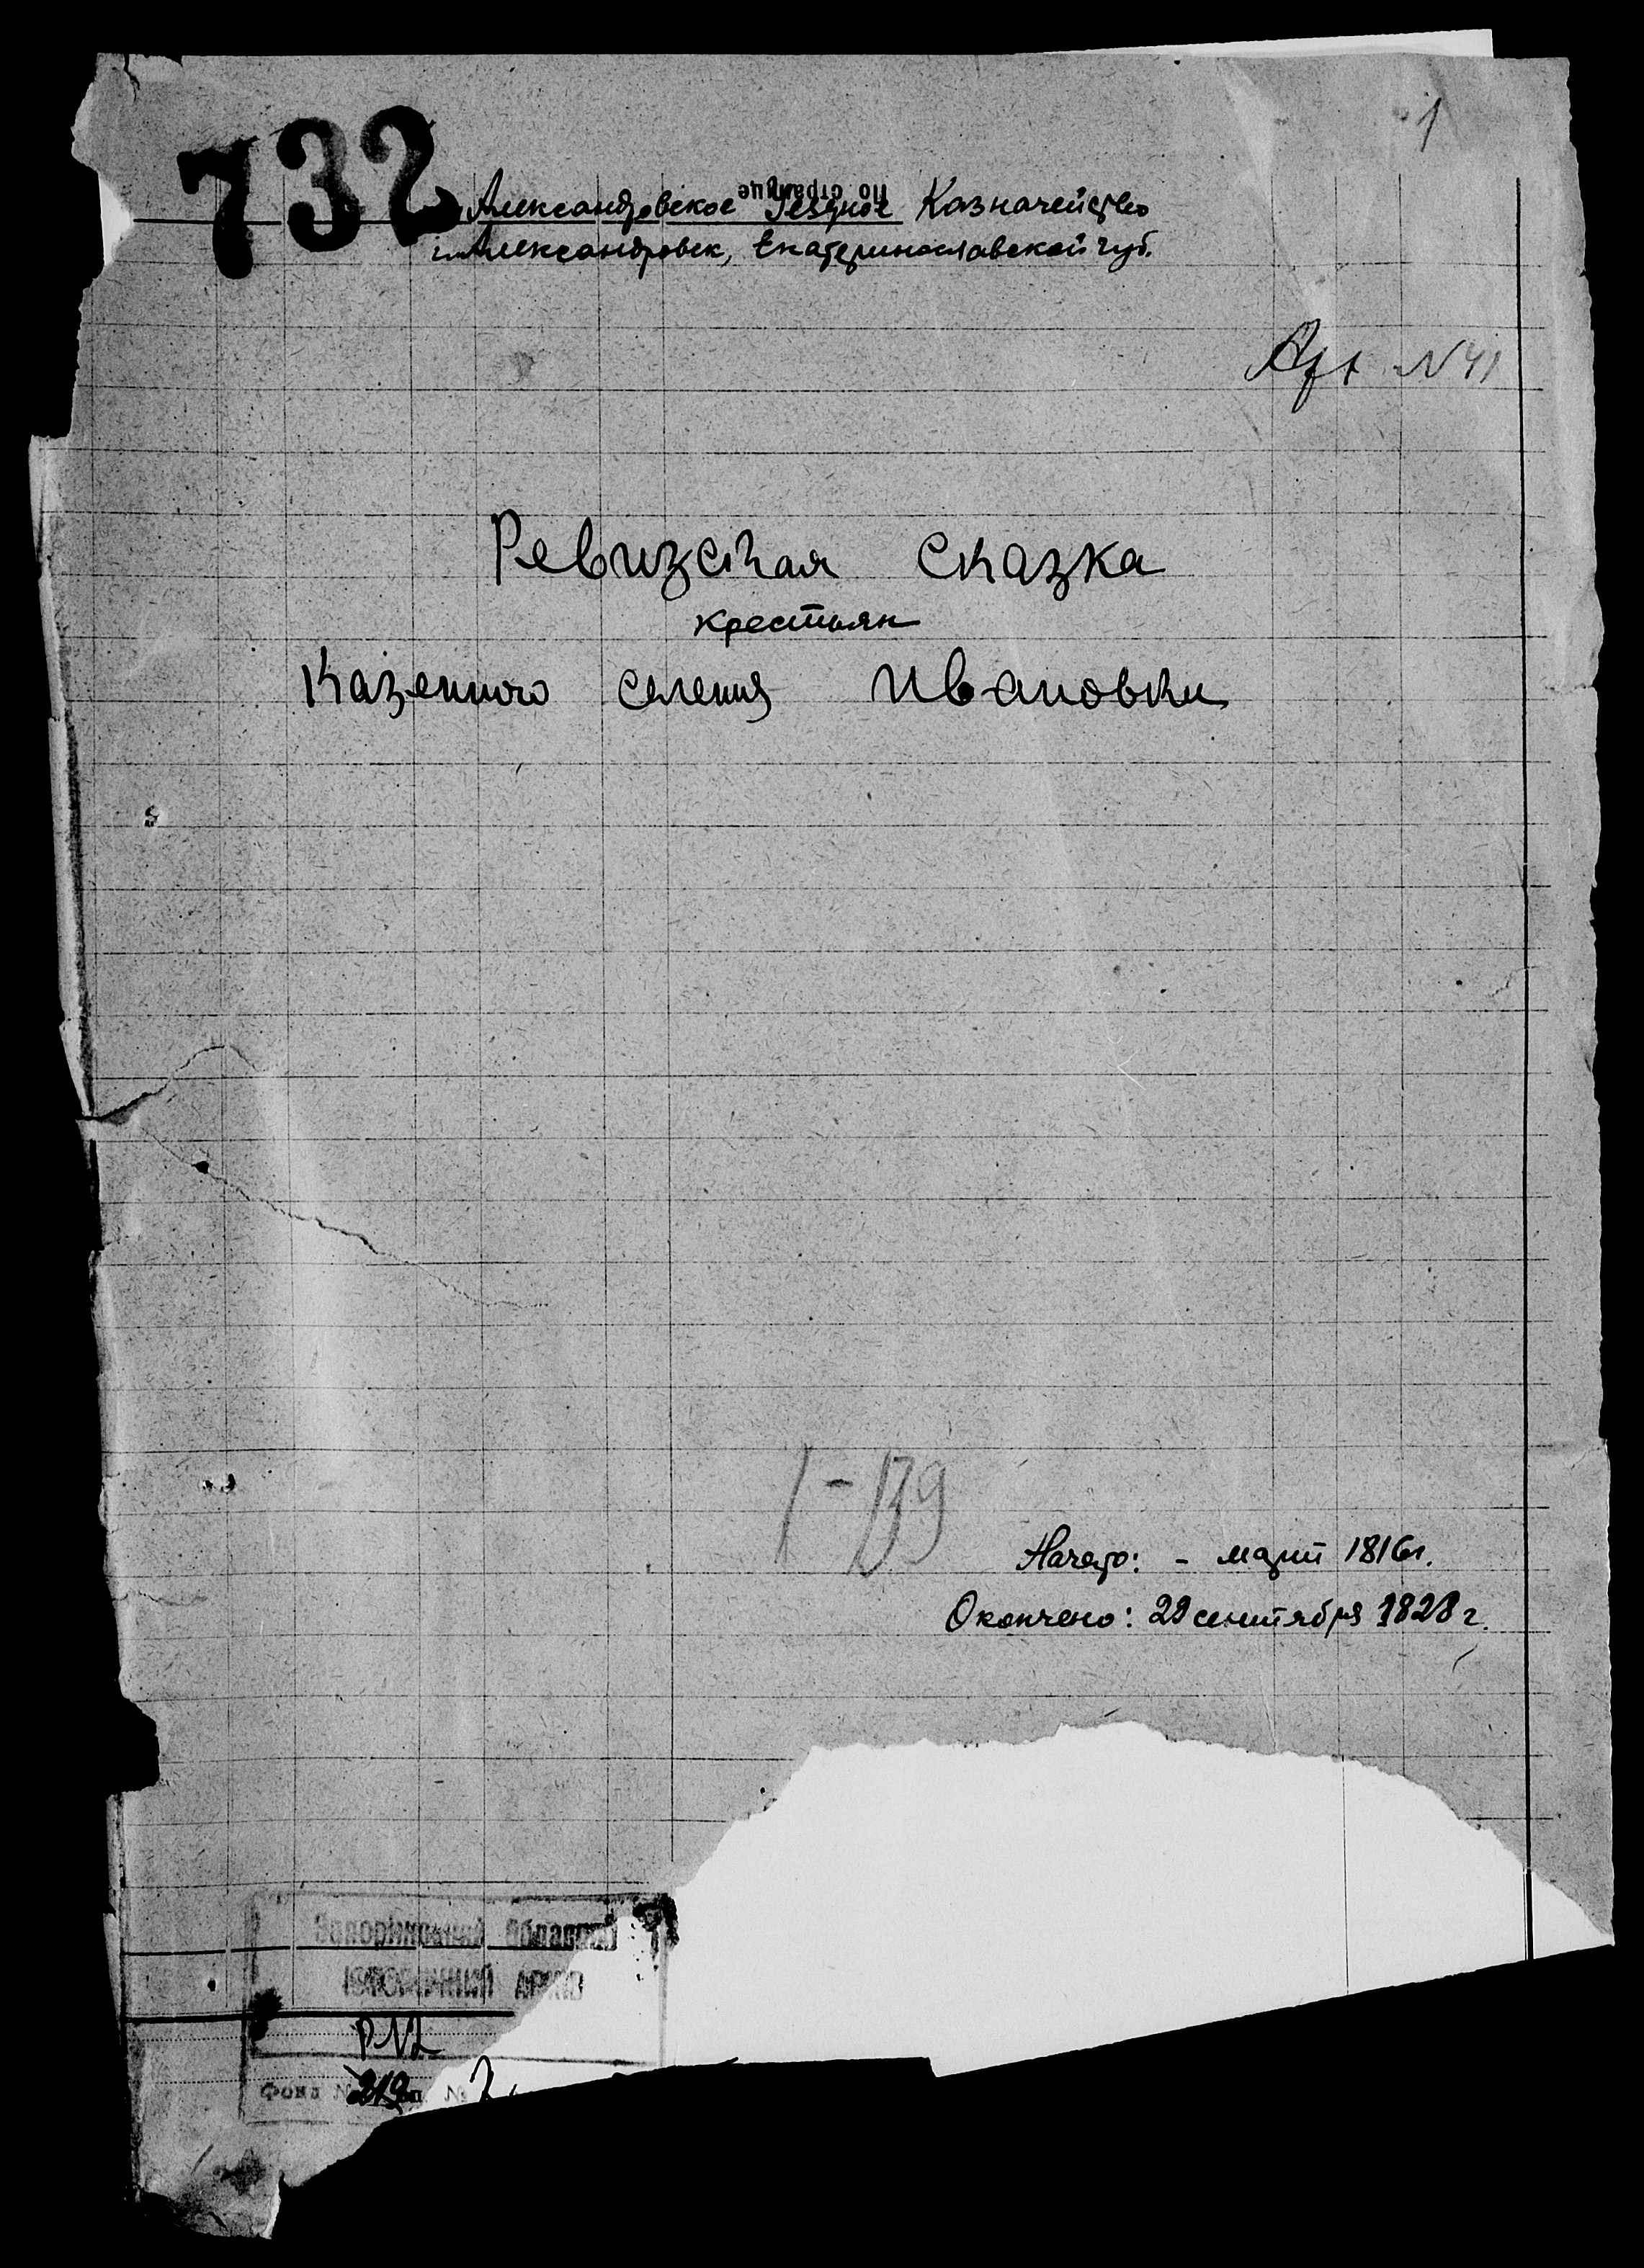 732
1
по странице
Александровское Уездное Казначейство
г. Александровск, Екатеринославской губ.
№ 41
Ревизская сказка
крестьян
Казенного селения Ивановки
1-139
Начато: - март 1816 г.
Окончено: 29 сентября 1828 г.
Запорiжський Обласний
IСТОРИЧНИЙ АРХIВ
Фонд №